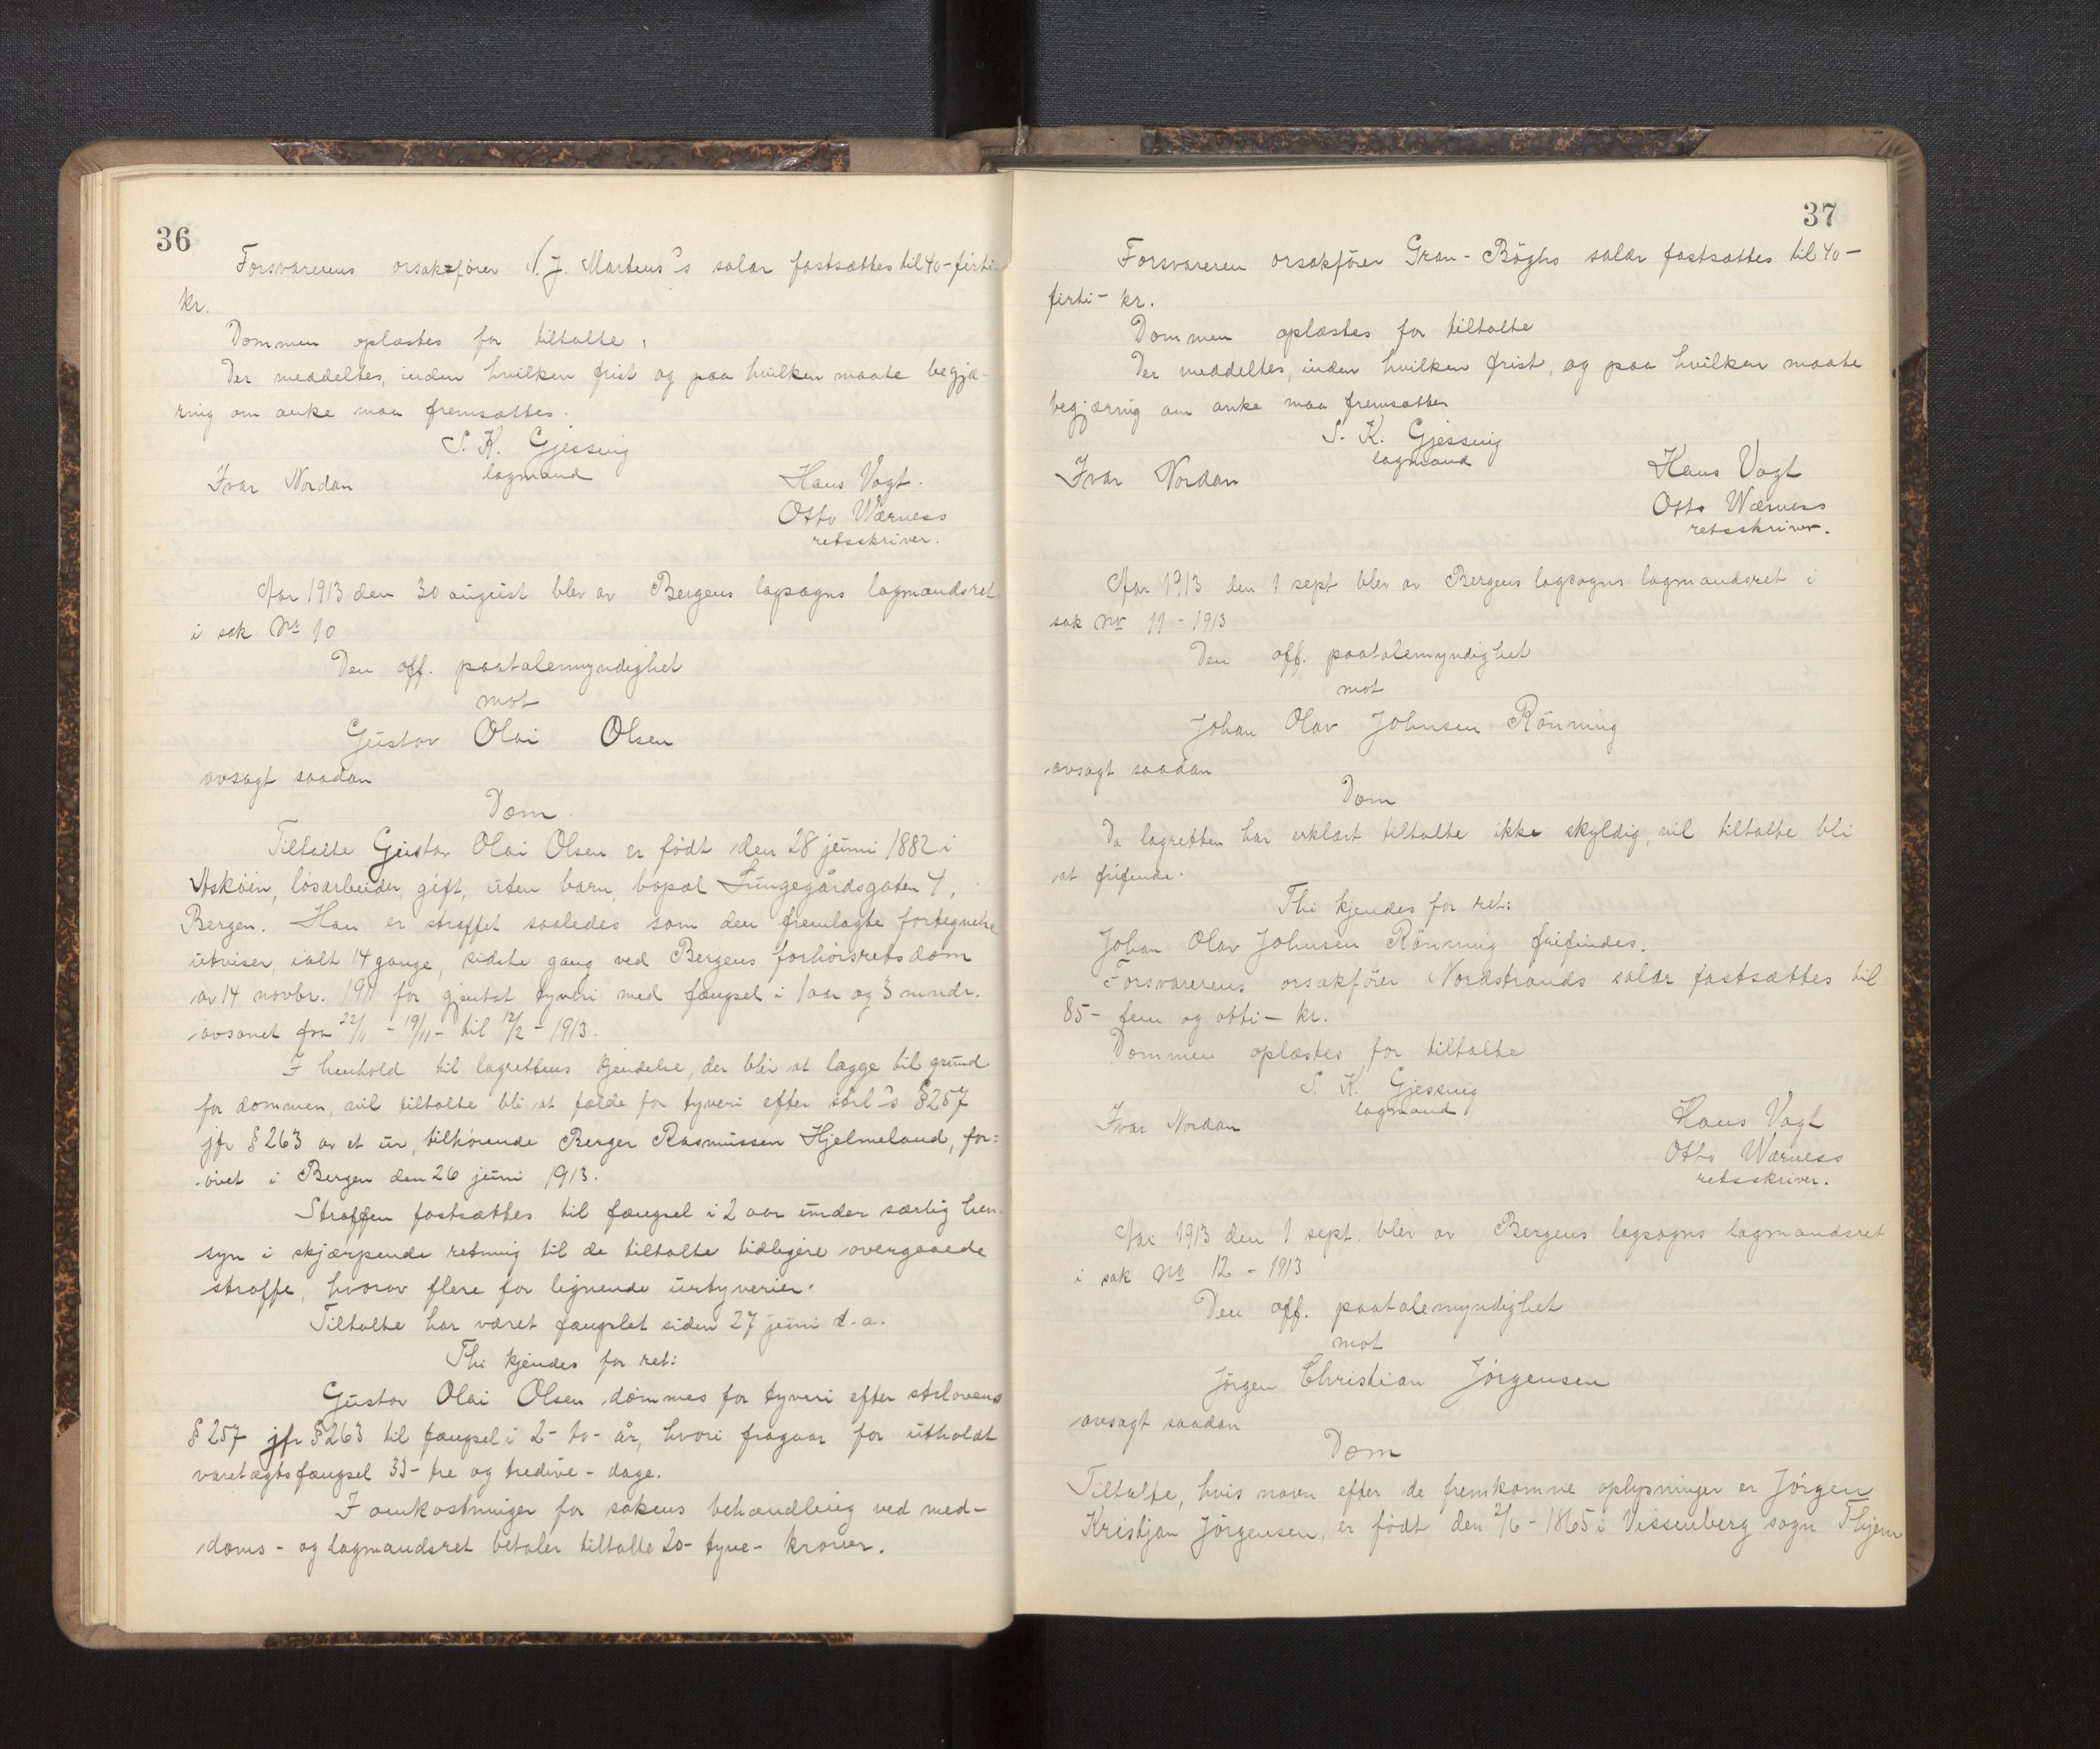 36
Forsvarerens orsakfører N. J. Martens's salær fastsættes til 40 - førti
kr.
Dommen oplæstes for tiltalte.
Der meddeltes, inden hvilken frist og paa hvilken maate begjæ-
ring om anke maa fremsættes.
S. K. Gjessing
lagmand
Ivar Nordan
Hans Vogt.
Otto Wærness
retsskriver.
Aar 1913 den 30 august blev av Bergens lagsogns lagmandsret
i sak No 10
Den off. paatalemyndighet
mot
Gustav Olai Olsen
avsagt saadan
Dom.
Tiltalte Gustav Olai Olsen er født den 28 juni 1882 i
Askøen, løsarbeider, gift, uten barn, bopæl Lungegårdsgaten 4,
Bergen. Han er straffet saaledes som den fremlagte fortegnelse
utviser, ialt 14 gange, sidste gang ved Bergens forhørsretsdom
av 14 novbr. 1911 for gjentat tyveri med fængsel i 1 aar og 3 mndr.
avsonet fra 22/11 - 19/11 - til 12/2 - 1913.
I henhold til lagrettens kjendelse, der blir at lægge til grund
for dommen, vil tiltalte bli at fælde for tyveri efter strl's § 257
jfr § 263 av et ur, tilhørende Berger Rasmussen Hjelmeland, for=
øvet i Bergen den 26 juni 1913.
Straffen fastsættes til fængsel i 2 aar under særlig hen-
syn i skjærpende retning til de tiltalte tidligere overgaaede
straffe, hvorav flere for lignende urtyverier.
Tiltalte har været fængslet siden 27 juni d.a.
Thi kjendes for ret:
Gustav Olai Olsen dømmes for tyveri efter strlovens
§ 257 jfr § 263 til fængsel i 2 - to - år, hvori fragaar for utholdt
varetægtsfængsel 33 - tre og tredive - dage.
I omkostninger for sakens behandling ved med-
doms - og lagmandsret betaler tiltalte 20 - tyve - kroner.
37
Forsvareren orsakfører Gran - Bøghs salær fastsættes til 40 -
førti - kr.
Dommen oplæstes for tiltalte
Der meddeltes, inden hvilken frist, og paa hvilken maate
begjæring om anke maa fremsættes
S. K. Gjessing
lagmand
Ivar Nordan
Hans Vogt
Otto Wærness
retsskriver.
Aar 1913 den 1 sept blev av Bergens lagsogns lagmandsret i
sak No 11 - 1913
Den off. paatalemyndighet
mot
Johan Olav Johnsen Rönning
avsagt saadan
Dom
Da lagretten har erklært tiltalte ikke skyldig, vil tiltalte bli
at frifinde.
Thi kjendes for ret:
Johan Olav Johnsen Rönning frifindes.
Forsvarerens orsakfører Nordstrands salær fastsættes til
85 - fem og otti - kr.
Dommen oplæstes for tiltalte
S. K. Gjessing
lagmand
Ivar Nordan
Hans Vogt
Otto Wærness
retsskriver.
Aar 1913 den 1 sept. blev av Bergens lagsogns lagmandsret
i sak No 12 - 1913
Den off. paatalemyndighet
mot
Jörgen Christian Jörgensen
avsagt saadan
Dom
Tiltalte, hvis navn efter de fremkomne oplysninger er Jörgen
Kristjan Jörgensen, er født den 2/6 - 1865 i Vissenberg sogn